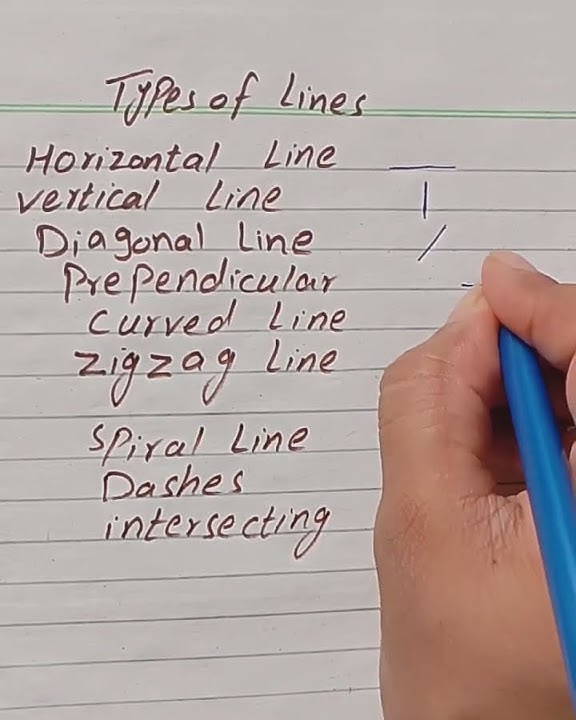 Types of Lines
Horizontal Line
vertical Line
Diagonal Line
Prependicular
curved Line
zigzag Line
spiral Line
Dashes
intersecting